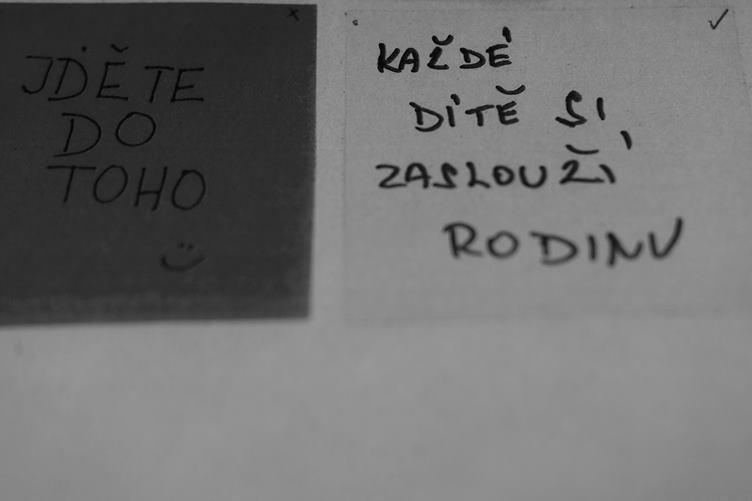 JDĚTE
DO
TOHO
KAŽDÉ
DÍTĚ SI
ZASLOUŽÍ
RODINU